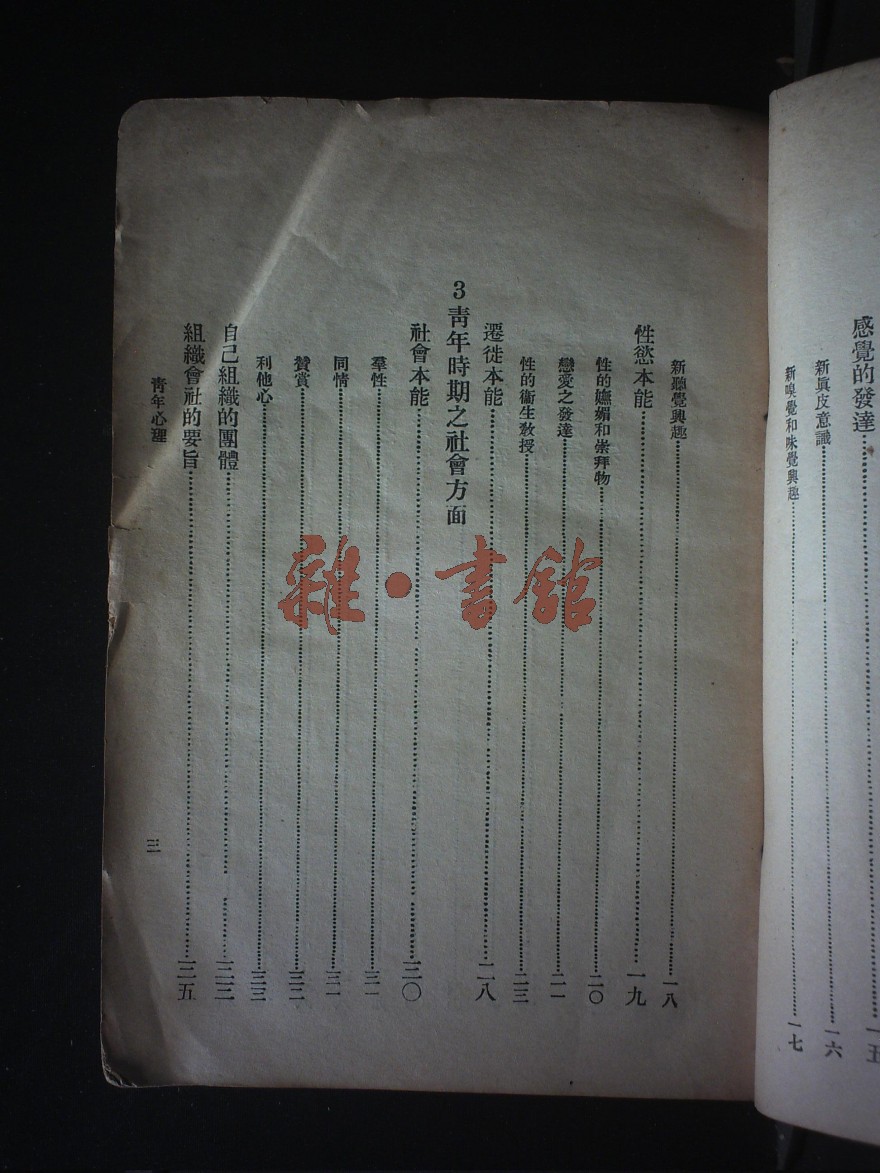 感覺的發達……一五
新眞皮意識……一六
新嗅覺和味覺興趣……一七
新聽覺興趣……一八
性慾本能……一九
性的嫵媚和崇拜物……二〇
戀愛之發達……二一
性的衞生敎授……二三
遷徙本能……二八
3 靑年時期之社會方面
社會本能……三〇
羣性……三一
同情……三一
贊賞……三二
利他心……三三
自己組織的團體……三三
組織會社的要旨……三五
靑年心理
三
雜·書館